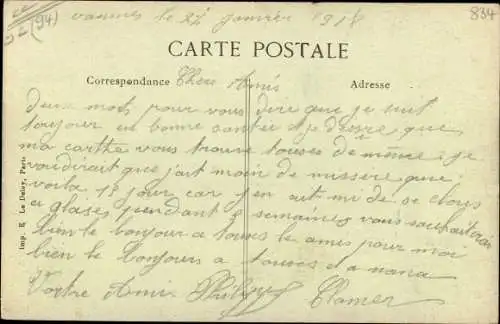 834
52 (94)
vannes le 27 janvier 1918
CARTE POSTALE
Correspondance
Adresse
Chers Amis
deux mots pour vous dire que je suit
toujour en bonne santée et je desire que
ma carthe vous trouve touses de même. je
voudirait que j'ait moin de missere que
voila jour car j'en ait mi de se
a glaises pendant semaines vous
bien le bonjour a touses le amis pour moi
bien le Bonjour a touses da nana
Vortre Amis Philippe Clamer
Imp. E. Le Deley, Paris